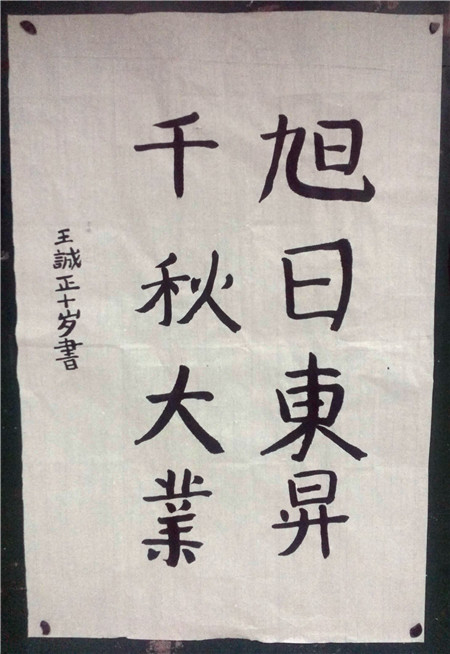 旭日東昇
千秋大業
王誠正十岁書